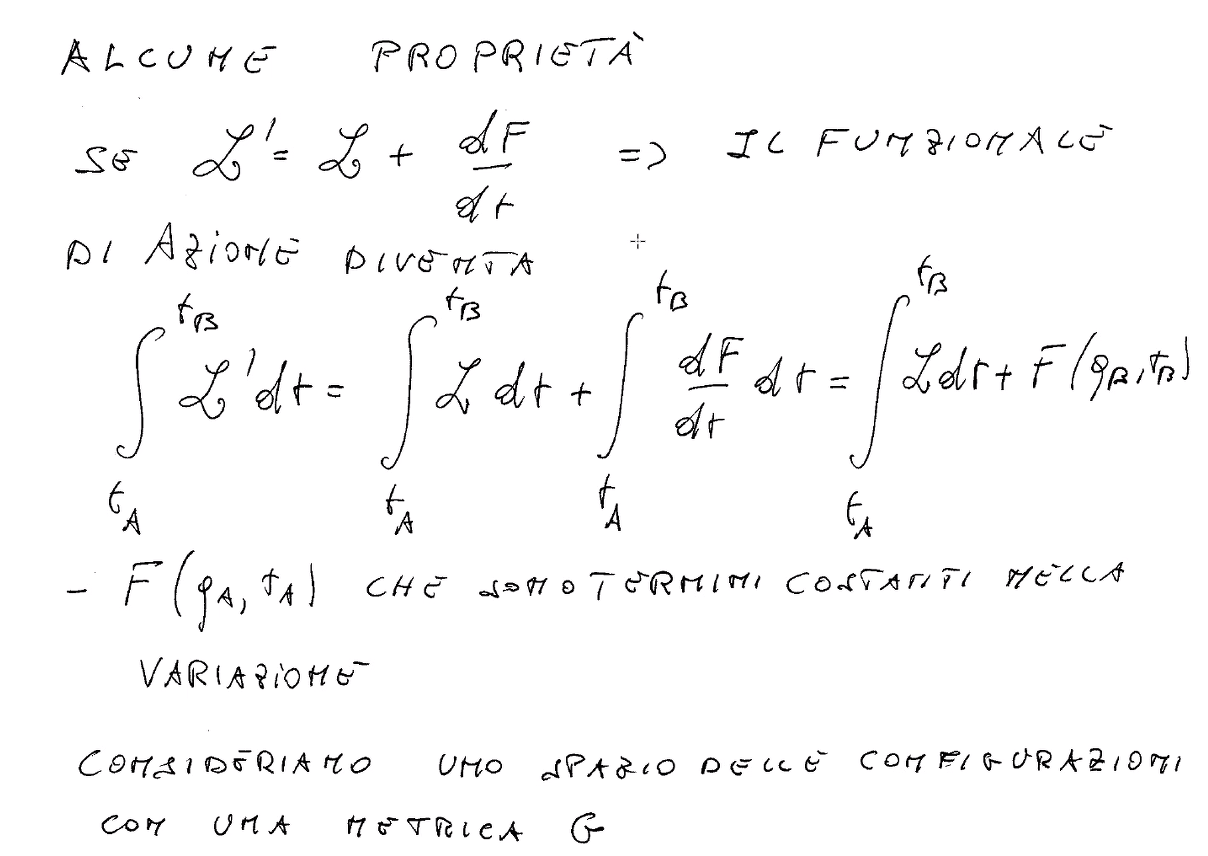 ALCUNE PROPRIETÀ
SE ℒ' = ℒ + dF/dt => IL FUNZIONALE
DI AZIONE DIVENTA
∫_{t_A}^{t_B} ℒ' dt = ∫_{t_A}^{t_B} ℒ dt + ∫_{t_A}^{t_B} dF/dt dt = ∫_{t_A}^{t_B} ℒ dt + F(q_B, t_B)
- F(q_A, t_A) CHE SONO TERMINI COSTANTI NELLA
VARIAZIONE
CONSIDERIAMO UNO SPAZIO DELLE CONFIGURAZIONI
CON UNA METRICA G